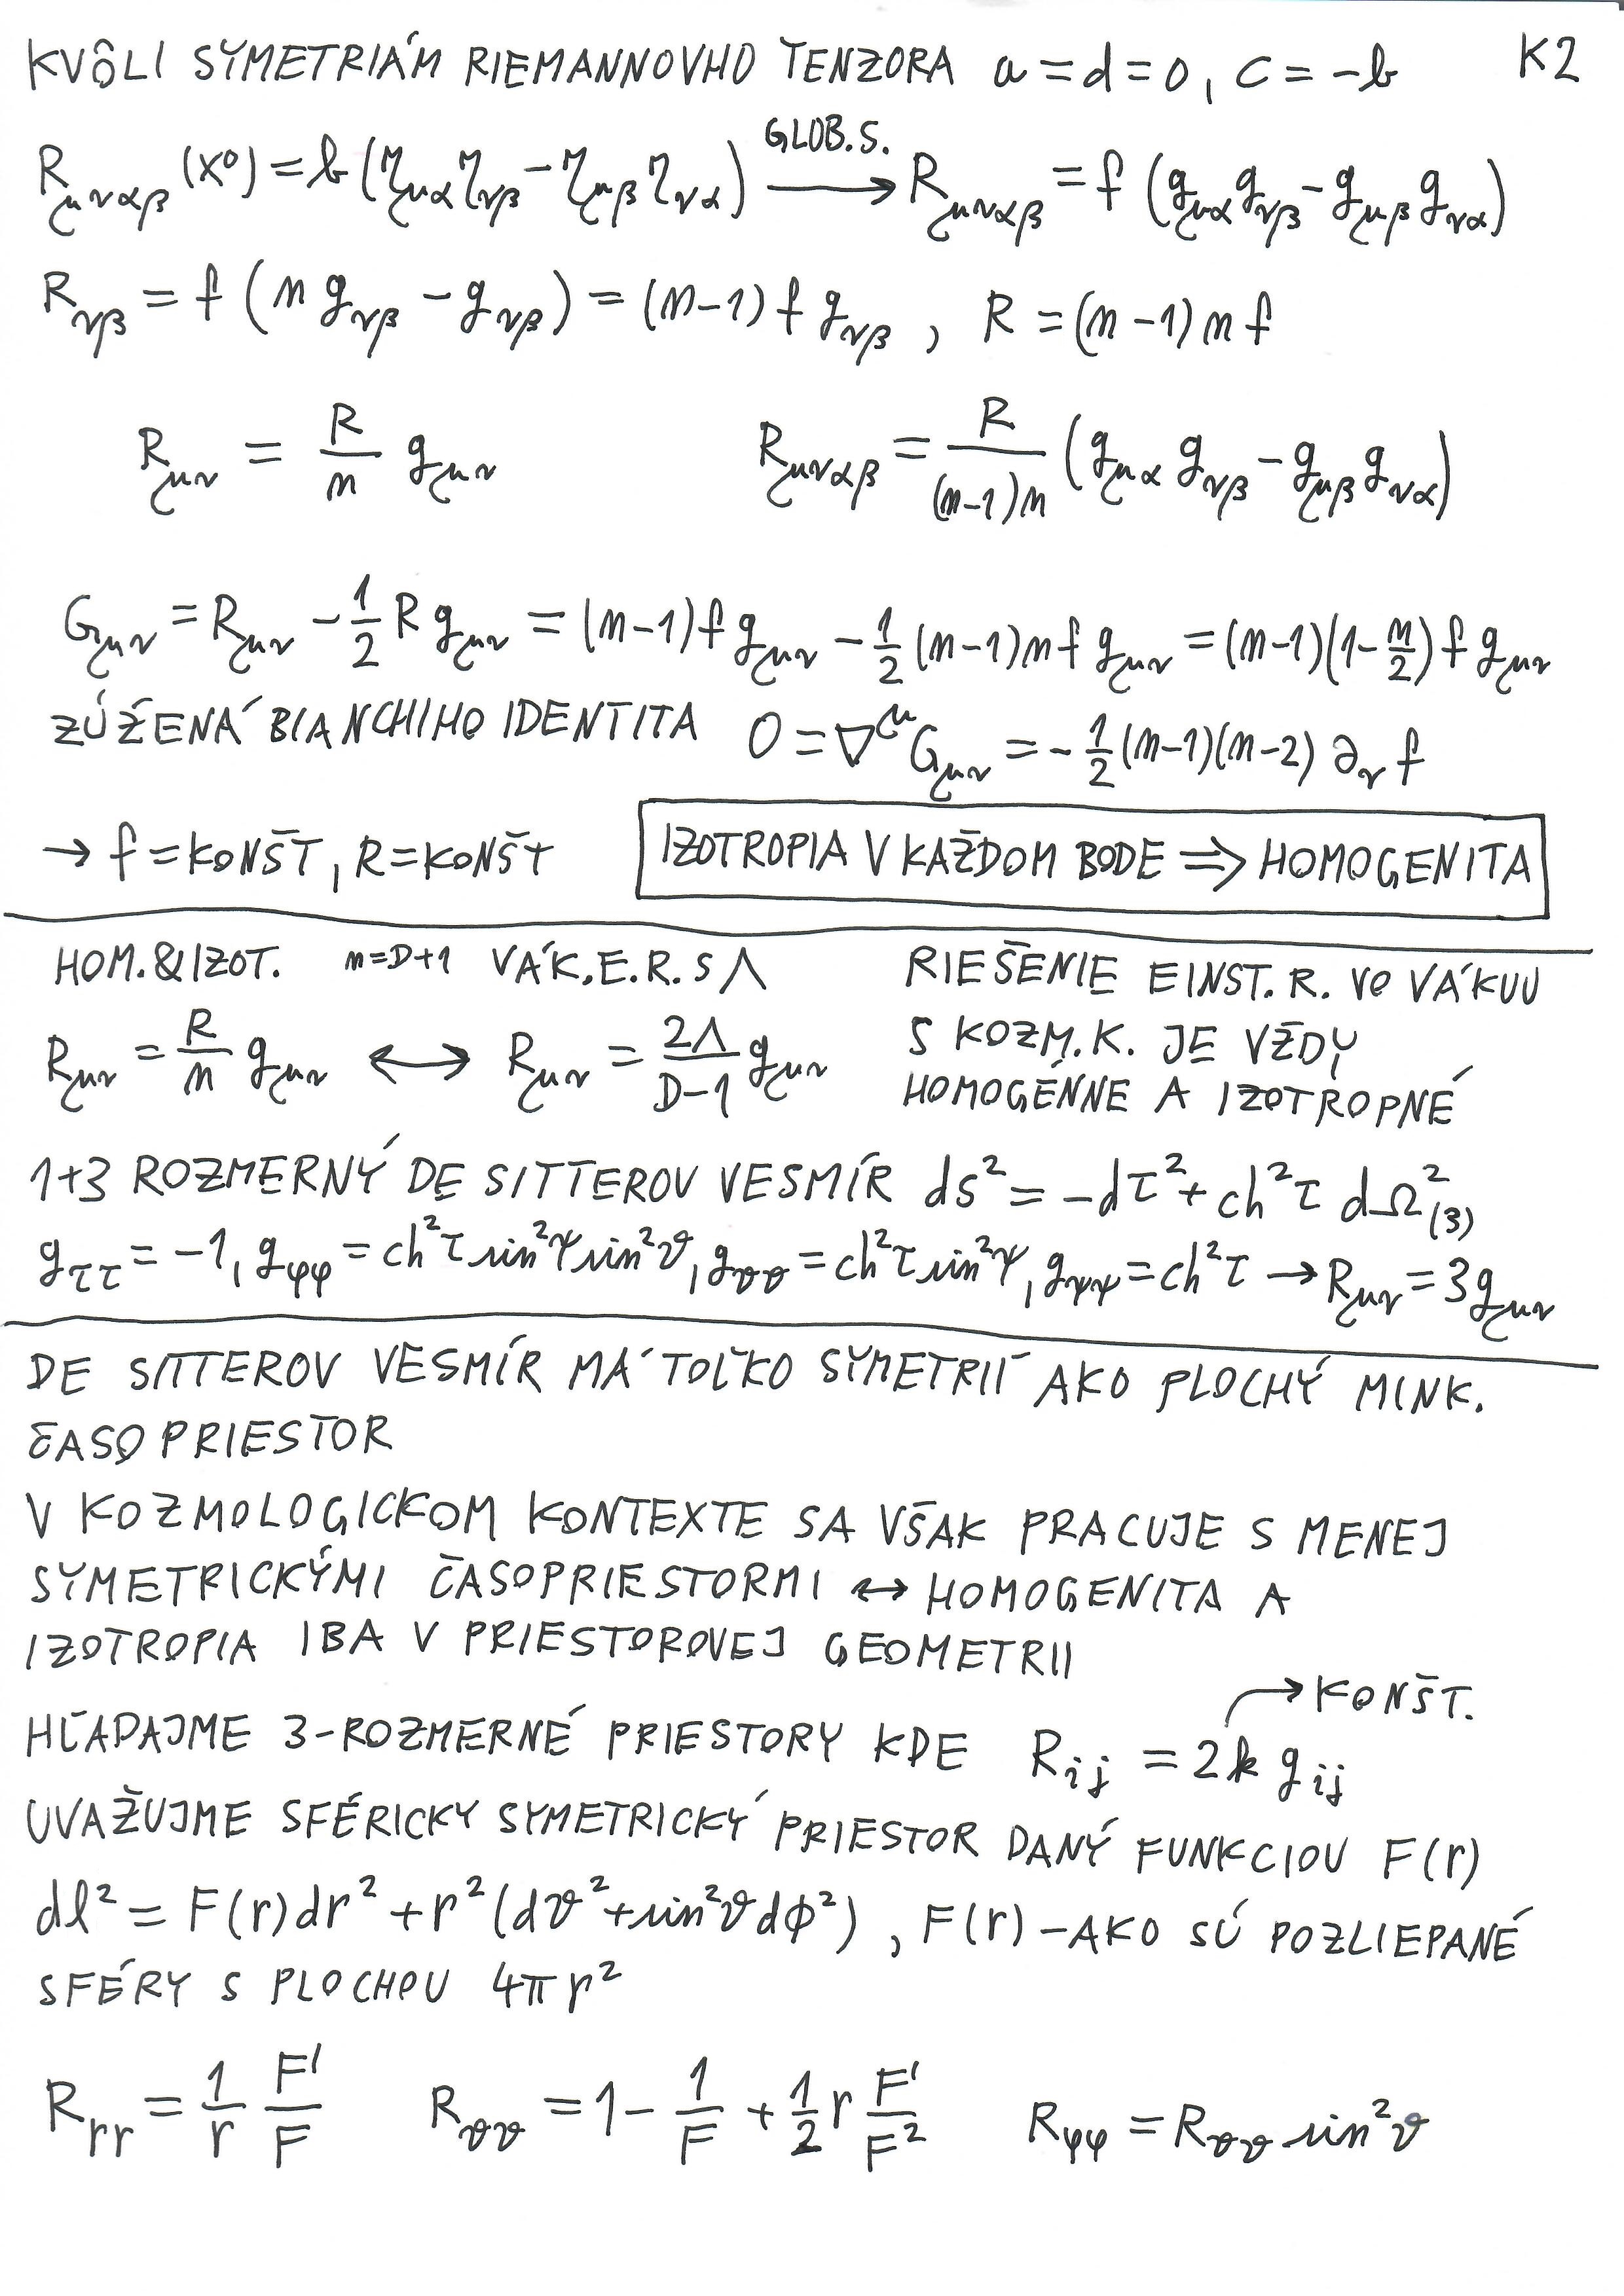 KVÔLI SYMETRIÁM RIEMANNOVHO TENZORA a = d = 0, c = -b K2
R_{μναβ}(x⁰) = b(η_{μα}η_{νβ} - η_{μβ}η_{να}) GLOB.S. ⟶ R_{μναβ} = f (g_{μα}g_{νβ} - g_{μβ}g_{να})
R_{νβ} = f (n g_{νβ} - g_{νβ}) = (n-1) f g_{νβ} , R = (n-1) n f
R_{μν} = R/n g_{μν} R_{μναβ} = R/((n-1)n) (g_{μα} g_{νβ} - g_{μβ} g_{να})
G_{μν} = R_{μν} - 1/2 R g_{μν} = (n-1) f g_{μν} - 1/2 (n-1) n f g_{μν} = (n-1)(1 - n/2) f g_{μν}
ZÚŽENÁ BIANCHIHO IDENTITA 0 = ∇^μ G_{μν} = - 1/2 (n-1)(n-2) ∂_ν f
→ f = KONŠT, R = KONŠT IZOTROPIA V KAŽDOM BODE ⇒ HOMOGENITA
HOM. & IZOT. n = D+1 VÁK. E. R. S Λ
R_{μν} = R/n g_{μν} ⟷ R_{μν} = 2Λ/(D-1) g_{μν}
RIEŠENIE EINST. R. VO VÁKUU
S KOZM. K. JE VŽDY
HOMOGÉNNE A IZOTROPNÉ
1+3 ROZMERNÝ DE SITTEROV VESMÍR ds² = -dτ² + ch²τ dΩ²_{(3)}
g_{ττ} = -1, g_{φφ} = ch²τ sin²ψ sin²ϑ, g_{ϑϑ} = ch²τ sin²ψ, g_{ψψ} = ch²τ → R_{μν} = 3 g_{μν}
DE SITTEROV VESMÍR MÁ TOĽKO SYMETRIÍ AKO PLOCHÝ MINK.
ČASOPRIESTOR
V KOZMOLOGICKOM KONTEXTE SA VŠAK PRACUJE S MENEJ
SYMETRICKÝMI ČASOPRIESTORMI ↔ HOMOGENITA A
IZOTROPIA IBA V PRIESTOROVEJ GEOMETRII
HĽADAJME 3-ROZMERNÉ PRIESTORY KDE R_{ij} = 2k g_{ij} → KONŠT.
UVAŽUJME SFÉRICKY SYMETRICKÝ PRIESTOR DANÝ FUNKCIOU F(r)
dl² = F(r) dr² + r² (dϑ² + sin²ϑ dϕ²) , F(r) - AKO SÚ POZLIEPANÉ
SFÉRY S PLOCHOU 4πr²
R_{rr} = 1/r F'/F R_{ϑϑ} = 1 - 1/F + 1/2 r F'/F² R_{φφ} = R_{ϑϑ} sin²ϑ